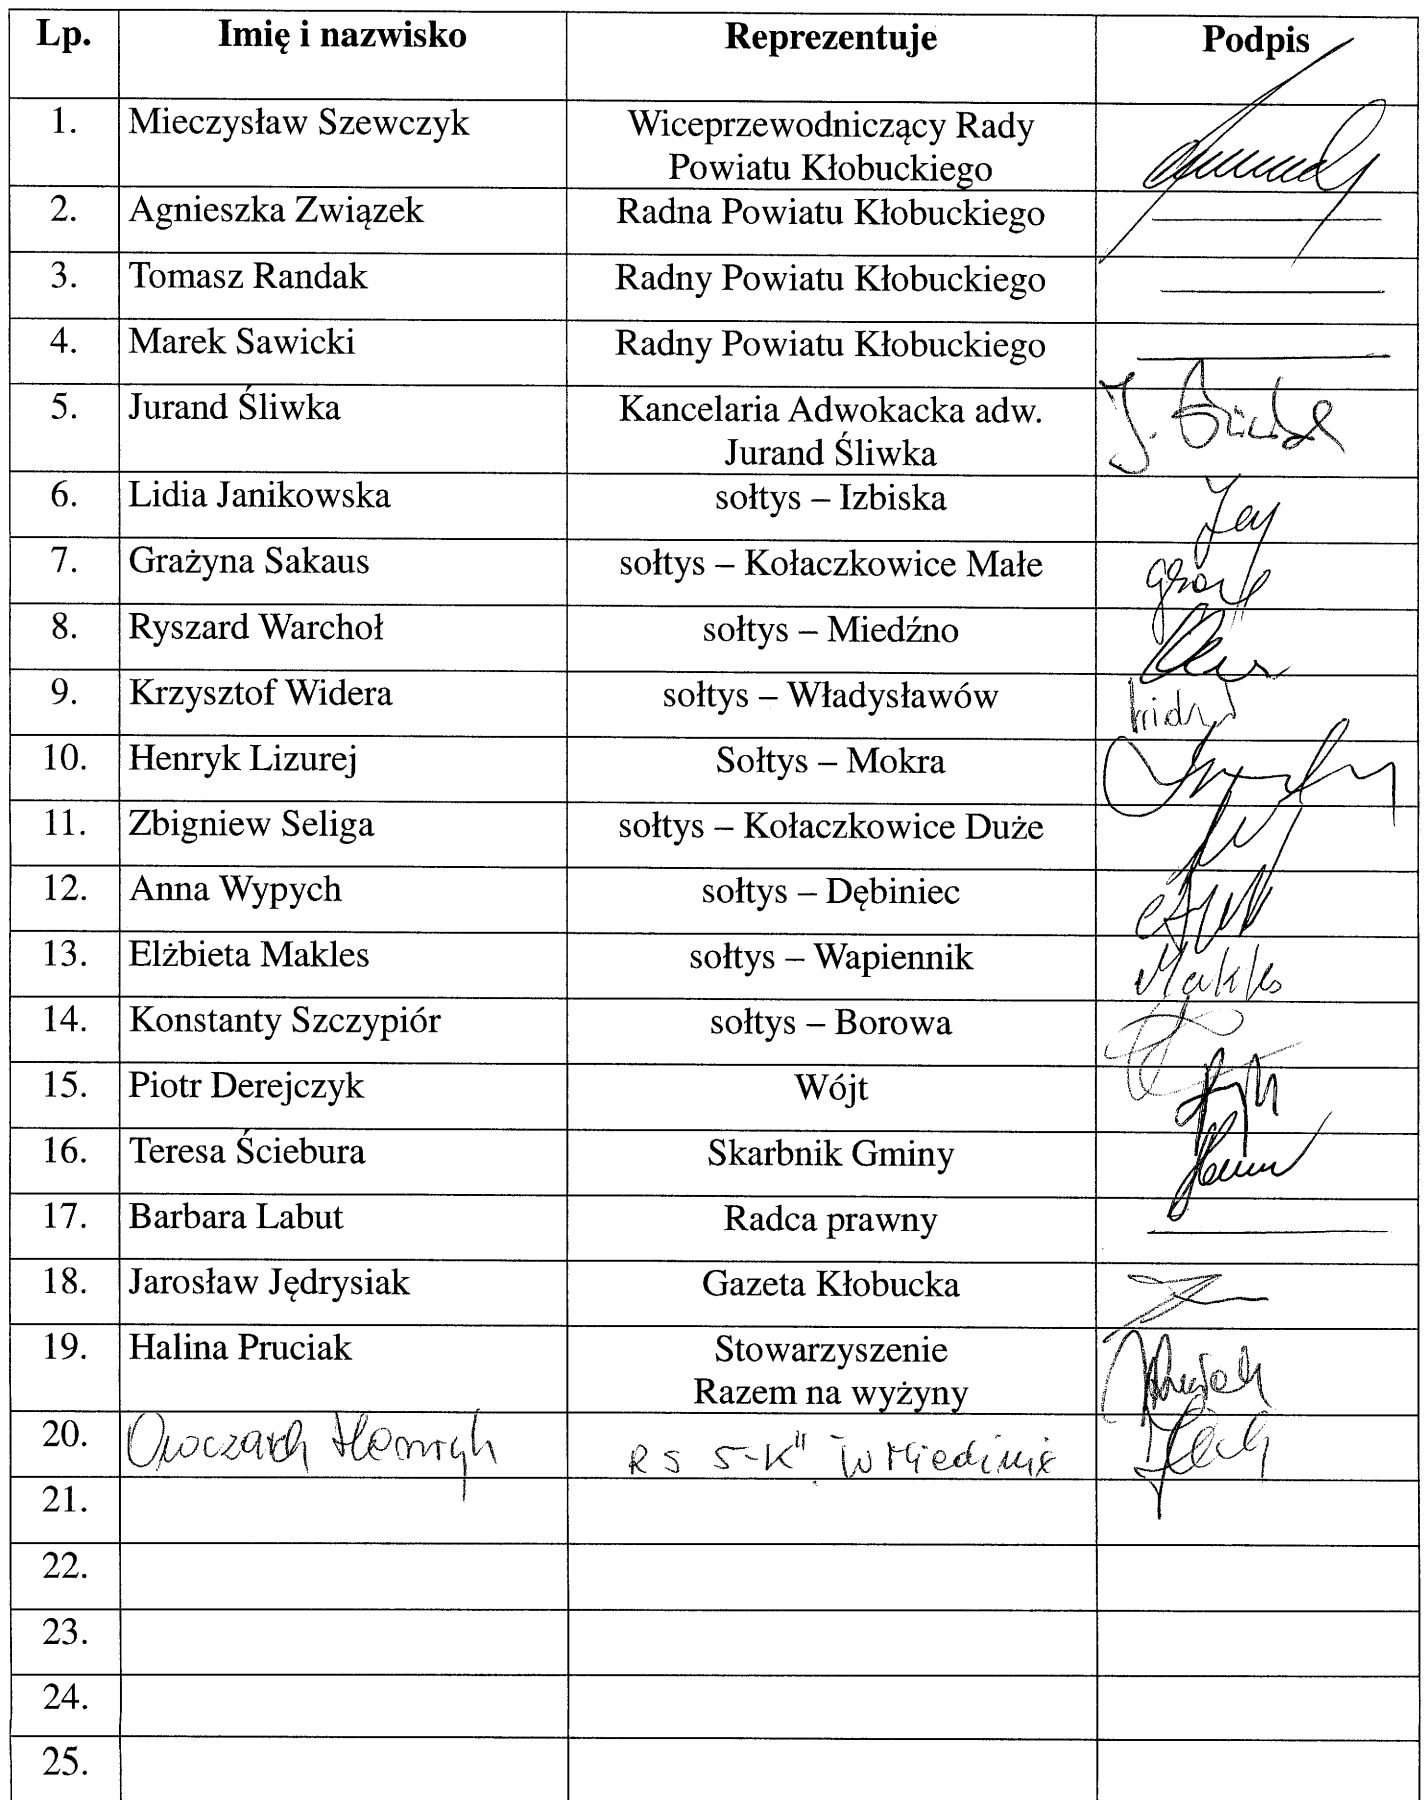 Lp. Imię i nazwisko Reprezentuje Podpis
1. Mieczysław Szewczyk Wiceprzewodniczący Rady
Powiatu Kłobuckiego
2. Agnieszka Związek Radna Powiatu Kłobuckiego
3. Tomasz Randak Radny Powiatu Kłobuckiego
4. Marek Sawicki Radny Powiatu Kłobuckiego
5. Jurand Śliwka Kancelaria Adwokacka adw.
Jurand Śliwka
6. Lidia Janikowska sołtys – Izbiska
7. Grażyna Sakaus sołtys – Kołaczkowice Małe
8. Ryszard Warchoł sołtys – Miedźno
9. Krzysztof Widera sołtys – Władysławów
10. Henryk Lizurej Sołtys – Mokra
11. Zbigniew Seliga sołtys – Kołaczkowice Duże
12. Anna Wypych sołtys – Dębiniec
13. Elżbieta Makles sołtys – Wapiennik
14. Konstanty Szczypiór sołtys – Borowa
15. Piotr Derejczyk Wójt
16. Teresa Ściebura Skarbnik Gminy
17. Barbara Labut Radca prawny
18. Jarosław Jędrysiak Gazeta Kłobucka
19. Halina Pruciak Stowarzyszenie
Razem na wyżyny
20. Henryk
21.
22.
23.
24.
25.